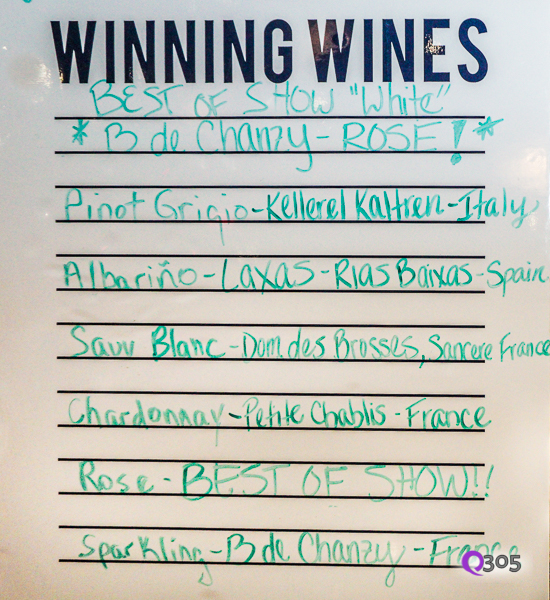 WINNING WINES
BEST OF SHOW "White"
* B de Chanzy - ROSE! *
Pinot Grigio - Kellerel Kaltren - Italy
Albariño - LAXAS - RIAS BAIXAS - Spain
Sauv Blanc - Dom des Brosses, Sancere France
Chardonnay - Petite Chablis - France
Rose - BEST OF SHOW!!
Sparkling - B de Chanzy - France
305